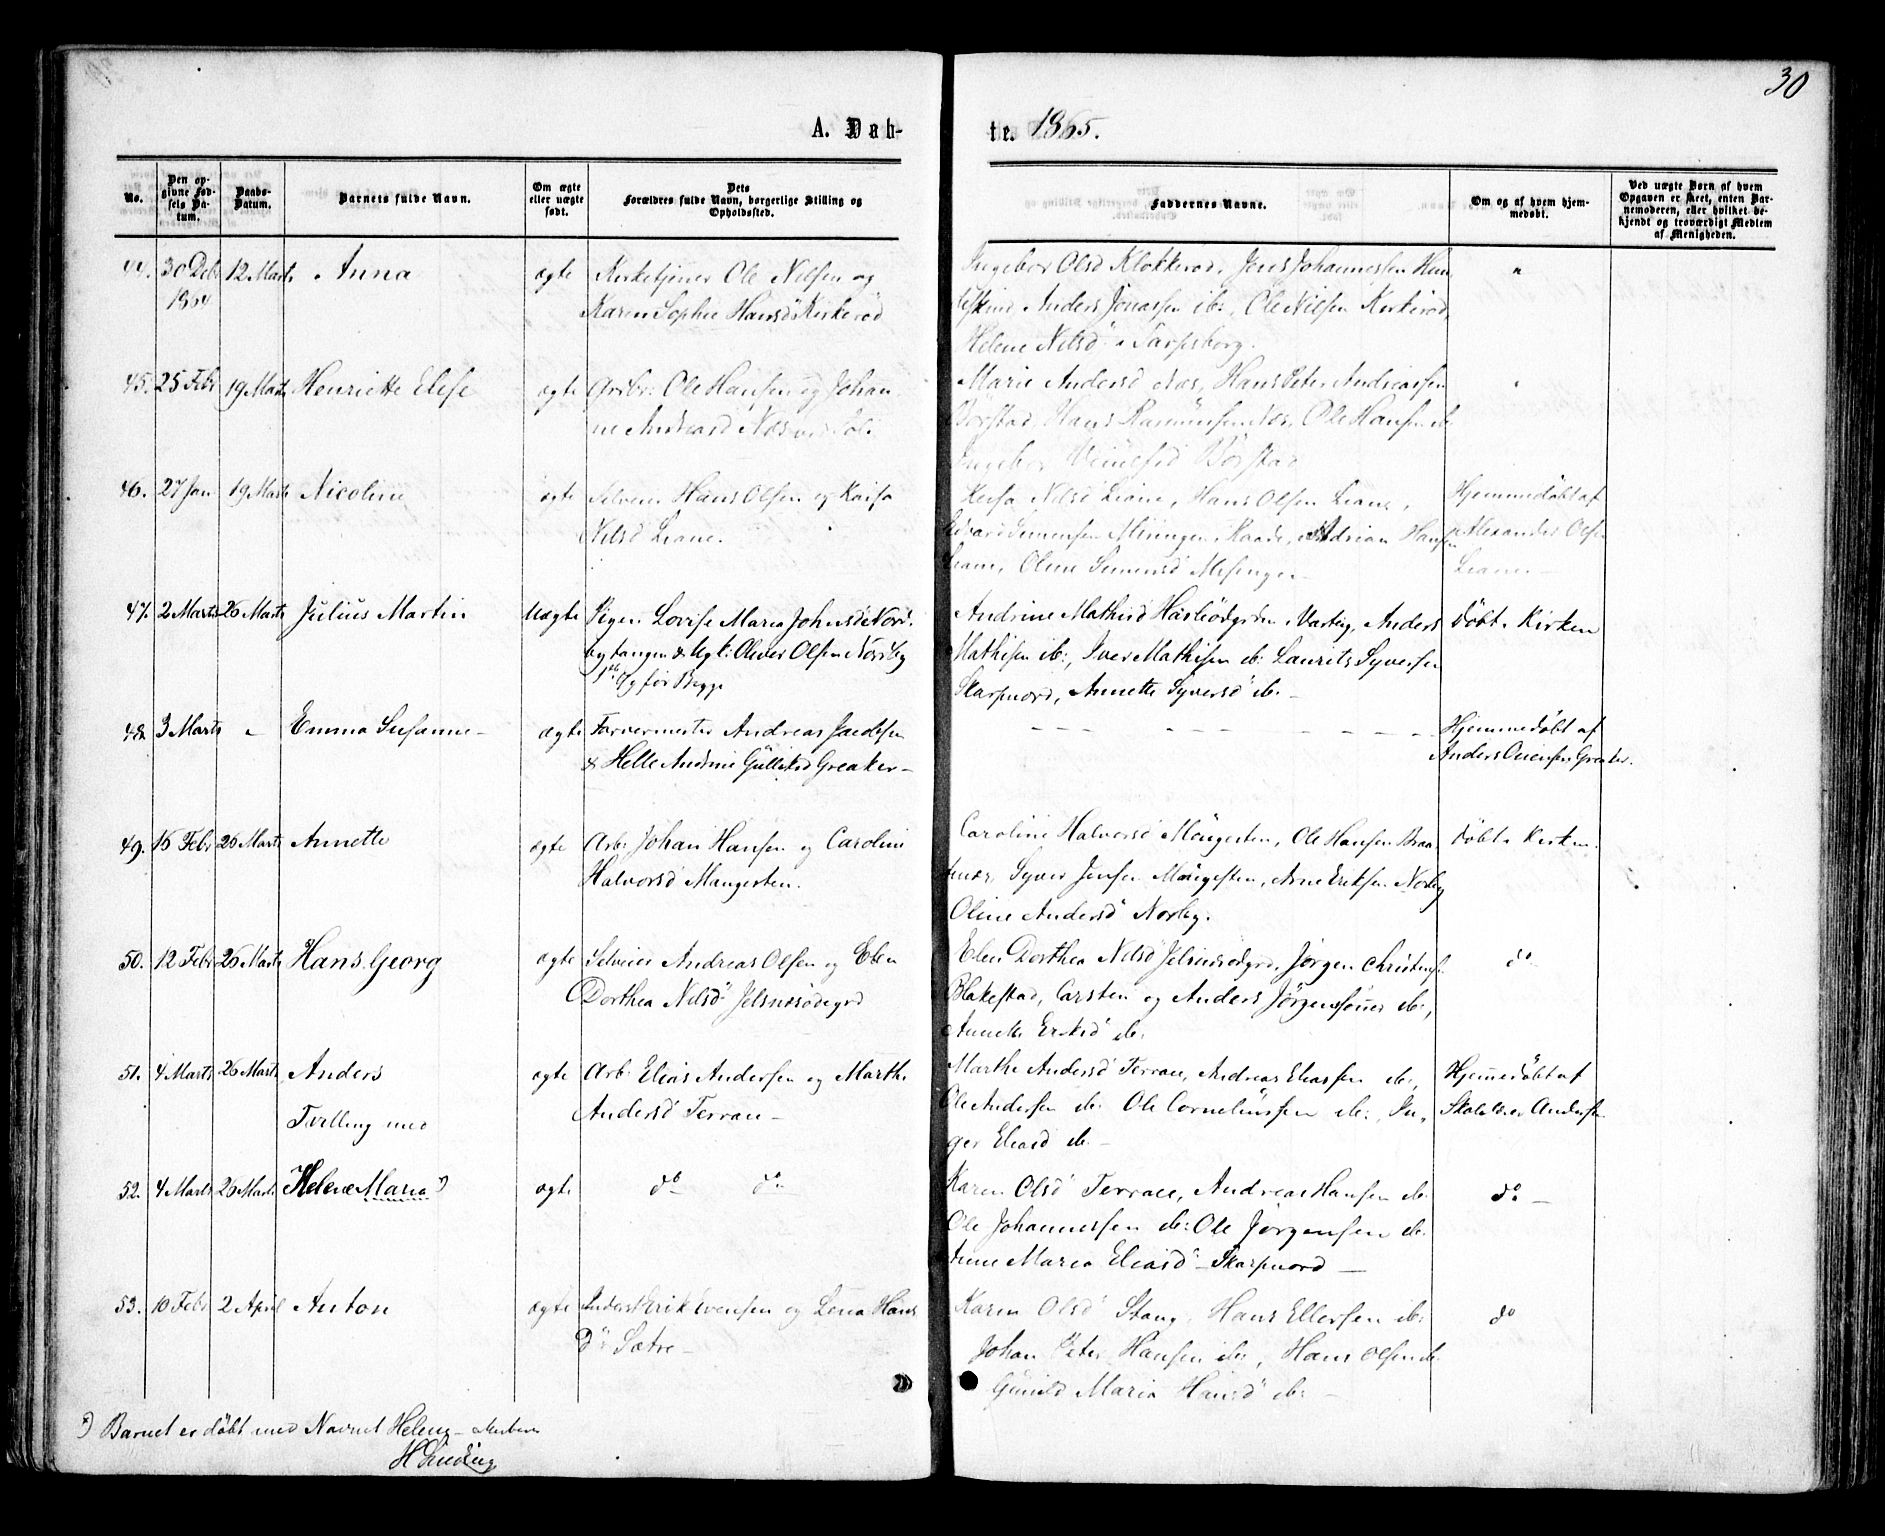 30
A. Døb-
te. 1865.
No.
Den op-
givne Fød-
sels Da-
tum.
Daabs-
Datum.
Barnets fulde Navn.
Om ægte
eller uægte
født.
Dets
Forældres fulde Navn, borgerlige Stilling og
Opholdssted.
Faddernes Navne.
Om og af hvem hjem-
medøbt.
Ved uægte Børn af hvem
Opgaven er skeet, enten Bar-
nemoderen, eller hvilket be-
kjendt og troværdigt Medlem
af Menigheden.
44. 30 Decb 12 Marts Anna ægte Kirketjener Ole Nilsen og
1864
Karen Sophie Hansd Kirkerød
Ingebor Olsd Klokkerød, Jens Johannessen Hun
Anders Jonassen ib:, Ole Nilsen Kirkerød,
Helene Nilsd Sarpsborg.
45. 25 Febr 19 Marts Henriette Elise ægte Arb: Ole Hansen og Johan
ne Andreasd Næs
Marie Andersd Næs, Hans Peter Andreassen
Børstad, Hans Rasmussen Næs, Ole Hansen ib
Ingebor Børstad
46. 27 Jan 19 Marts Nicoline ægte Selveier Hans Olsen og Kaisa
Nilsd Liane.
Kaisa Nilsd Liane, Hans Olsen Liane,
Edvard Simensen Raade, Adrian Hansen
Liane, Oline Simensd
Hjemmedøbt af
Alexander Olsen
Liane
47. 2 Marts 26 Marts Julius Martin Uægte Pigen Lovise Maria Johnsd Nord
bytangen & Ugk: Oliver Olsen Nordby
for Begge
Andrine Mathisd i Varteig, Anders
Mathisen ib:, Iver Mathisen ib: Laurits Syversen
Skarpnord, Annette Syversd ib. –
Døbt i Kirken
48. 3 Marts " Emma Susanne – ægte Farvermester Andreas Jacobsen
& Helle Andrine Gulliksd Greaker –
– – – – – – – – –
Hjemmedøbt af
Anders Greaker.
49. 16 Febr 26 Marts Annette ægte Arb: Johan Hansen og Caroline
Halvorsd Maugesten.
Caroline Halvorsd Maugesten, Ole Hansen Braa
tenæs, Syver Jensen Maugesten, Arne Eriksen Norby
Oline Andersd Norby.
Døbt i Kirken.
50. 12 Febr 26 Marts Hans Georg ægte Selveier Andreas Olsen og Elen
Dorthea Nilsd Jelsnæsødegrd
Elen Dorthea Nilsd Jelsnæsødegrd, Jørgen Christensen
Blakestad, Carsten og Anders Jørgensønner ib:,
Annette ib:
do
51. 4 Marts 26 Marts Anders ægte Arb: Elias Andersen og Marthe
Tvilling med
Andersd Terrau –
Marthe Andersd Terrau, Andreas Eliassen ib:,
Ole Andersen ib: Ole Corneliussen ib:, In,
ger Eliasd ib. –
Hjemmedøbt af
Skolelærer Andersen
52. 4 Marts 26 Marts Helene Maria *) ægte do do
Karen Olsd Terrau, Andreas Hansen ib:
Ole Johannessen ib: Ole Jørgensen ib.
Anne Maria Eliasd – Skarpnord –
do –
53. 10 Febr 2 April Anton ægte Inderst Erik Evensen og Lena Hans
D: Sætre –
Karen Olsd Stang, Hans Ellefsen ib:
Johan Peter Hansen ib:, Hans Olsen ib.
Gunild Maria Hansd ib: –
do
*) Barnet er døbt med Navnet Helene –
H Linding